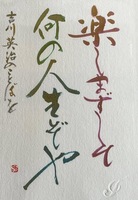 楽しまずして
何の人生ぞや
吉川英治のことばを